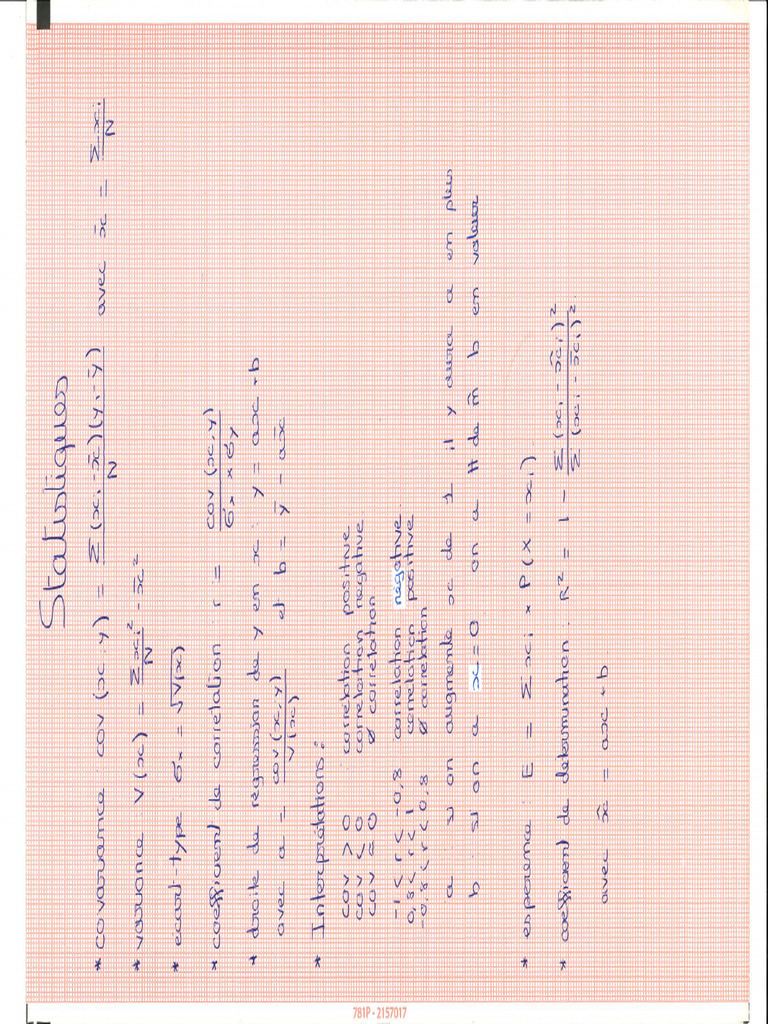 Statistiques
* covariance : cov (x ; y) = Σ (xi - x̄)(yi - ȳ) / N avec x̄ = Σ xi / N
* variance : V(x) = Σ xi² / N - x̄²
* écart-type σx = √V(x)
* coefficient de corrélation : r = cov (x, y) / σx × σy
* droite de régression de y en x : y = ax + b
avec a = cov(x, y) / V(x) et b = ȳ - ax̄
* Interprétations :
cov > 0 : corrélation positive
cov < 0 corrélation négative
cov = 0 ø corrélation
-1 < r < -0,8 corrélation négative.
0,8 < r < 1 corrélation positive
-0,8 < r < 0,8 ø corrélation
a : si on augmente x de 1 il y aura a en plus
b : si on a x = 0 on a # de m̂ b en valeur
* espérance : E = Σ xi × P(X = xi)
* coefficient de détermination : R² = 1 - Σ (xi - x̂i)² / Σ (xi - x̄i)²
avec x̂ = ax + b
781P - 2157017